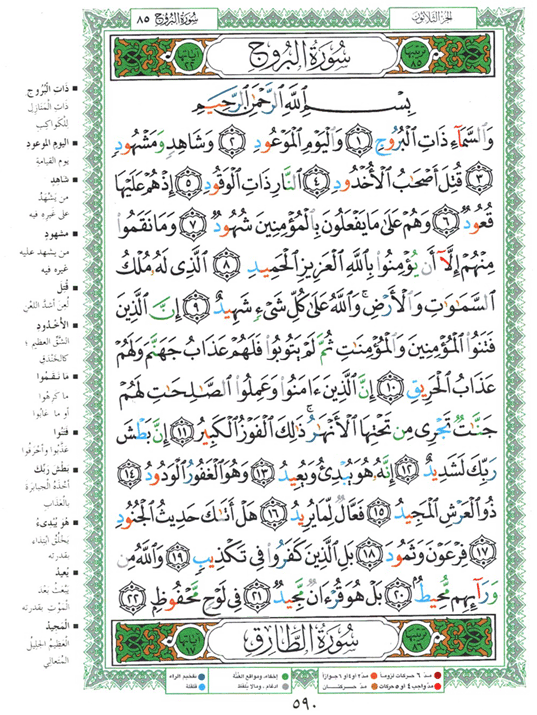 الجزء الثلاثون
سورة البروج ٨٥
ترتيبها ٨٥
سُورَةُ البُرُوج
آياتها ٢٢
بِسْمِ ٱللَّهِ ٱلرَّحْمَٰنِ ٱلرَّحِيمِ
وَٱلسَّمَآءِ ذَاتِ ٱلْبُرُوجِ ۝١ وَٱلْيَوْمِ ٱلْمَوْعُودِ ۝٢ وَشَاهِدٍ وَمَشْهُودٍ
۝٣ قُتِلَ أَصْحَٰبُ ٱلْأُخْدُودِ ۝٤ ٱلنَّارِ ذَاتِ ٱلْوَقُودِ ۝٥ إِذْ هُمْ عَلَيْهَا
قُعُودٌ ۝٦ وَهُمْ عَلَىٰ مَا يَفْعَلُونَ بِٱلْمُؤْمِنِينَ شُهُودٌ ۝٧ وَمَا نَقَمُوا۟
مِنْهُمْ إِلَّآ أَن يُؤْمِنُوا۟ بِٱللَّهِ ٱلْعَزِيزِ ٱلْحَمِيدِ ۝٨ ٱلَّذِى لَهُۥ مُلْكُ
ٱلسَّمَٰوَٰتِ وَٱلْأَرْضِ ۚ وَٱللَّهُ عَلَىٰ كُلِّ شَىْءٍ شَهِيدٌ ۝٩ إِنَّ ٱلَّذِينَ
فَتَنُوا۟ ٱلْمُؤْمِنِينَ وَٱلْمُؤْمِنَٰتِ ثُمَّ لَمْ يَتُوبُوا۟ فَلَهُمْ عَذَابُ جَهَنَّمَ وَلَهُمْ
عَذَابُ ٱلْحَرِيقِ ۝١٠ إِنَّ ٱلَّذِينَ ءَامَنُوا۟ وَعَمِلُوا۟ ٱلصَّٰلِحَٰتِ لَهُمْ
جَنَّٰتٌ تَجْرِى مِن تَحْتِهَا ٱلْأَنْهَٰرُ ۚ ذَٰلِكَ ٱلْفَوْزُ ٱلْكَبِيرُ ۝١١ إِنَّ بَطْشَ
رَبِّكَ لَشَدِيدٌ ۝١٢ إِنَّهُۥ هُوَ يُبْدِئُ وَيُعِيدُ ۝١٣ وَهُوَ ٱلْغَفُورُ ٱلْوَدُودُ ۝١٤
ذُو ٱلْعَرْشِ ٱلْمَجِيدُ ۝١٥ فَعَّالٌ لِّمَا يُرِيدُ ۝١٦ هَلْ أَتَىٰكَ حَدِيثُ ٱلْجُنُودِ
۝١٧ فِرْعَوْنَ وَثَمُودَ ۝١٨ بَلِ ٱلَّذِينَ كَفَرُوا۟ فِى تَكْذِيبٍ ۝١٩ وَٱللَّهُ مِن
وَرَآئِهِم مُّحِيطٌۢ ۝٢٠ بَلْ هُوَ قُرْءَانٌ مَّجِيدٌ ۝٢١ فِى لَوْحٍ مَّحْفُوظٍۭ ۝٢٢
ترتيبها ٨٦
سُورَةُ الطَّارِق
آياتها ١٧
■ ذَات الْبُرُوج
ذَاتِ الْمَنَازِل
لِلْكَوَاكِبِ
■ اليوم الموعود
يوم القيامة
■ شاهِدٍ
من يشهد
على غيره فيه
■ مشهودٍ
من يشهد عليه
غيره فيه
■ قُتِل
لُعِنَ أشدَّ اللَّعْن
■ الأخْدُود
الشَّقّ العظيم ؛
كالخندق
■ مَا نَقَمُوا
ما كرهوا
أو ما عابُوا
■ فَتَنُوا
عذّبوا وأحرقوا
■ بَطْشَ رَبِّك
أخذه الجبابرة
بالعذاب
■ هُوَ يُبْدِئ
يخلق ابتداء
بقدرته
■ يُعِيد
يَبْعَثُ بعد
الموت بقدرته
■ المَجِيد
العظيم الجليل
المتعالي
مدّ ٦ حركات لزوماً
مدّ ٢ أو ٤ أو ٦ جوازاً
إخفاء، ومواقع الغُنَّة
تفخيم الراء
مدّ واجب ٤ أو ٥ حركات
مدّ حركتان
ادغام ، وما لا يُلفظ
قلقلة
٥٩٠